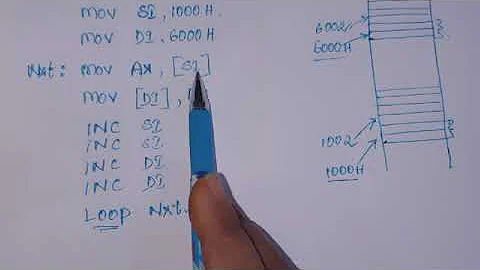 MOV SI, 1000H.
MOV DI, 6000H
Nxt: MOV AX, [SI]
MOV [DI],
INC SI
INC SI
INC DI
INC DI
LOOP Nxt.
6002
6000H
1002
1000H